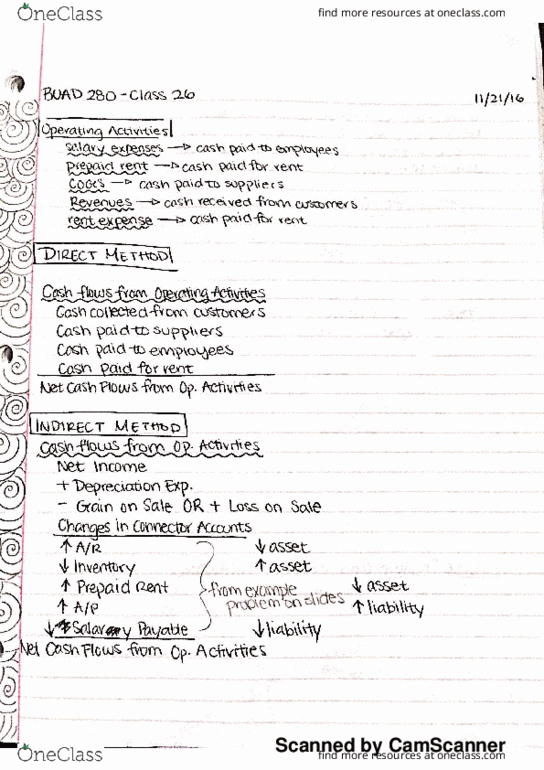 OneClass
find more resources at oneclass.com
BUAD 280 - Class 26
11/21/16
Operating Activities
salary expenses → cash paid to employees
prepaid rent → cash paid for rent
COGS → cash paid to suppliers
Revenues → cash received from customers
rent expense → cash paid for rent
DIRECT METHOD
Cash flows from Operating Activities
Cash collected from customers
Cash paid to suppliers
Cash paid to employees
Cash paid for rent
Net Cash Flows from Op. Activities
INDIRECT METHOD
Cash flows from Op. Activities
Net Income
+ Depreciation Exp.
- Grain on Sale OR + Loss on Sale
Changes in Connector Accounts
↑ A/R ↓ asset
↓ Inventory ↑ asset
↑ Prepaid Rent from example ↓ asset
↑ A/P problem on slides ↑ liability
↓ Salary Payable ↓ liability
Net Cash Flows from Op. Activities
Scanned by CamScanner
OneClass
find more resources at oneclass.com